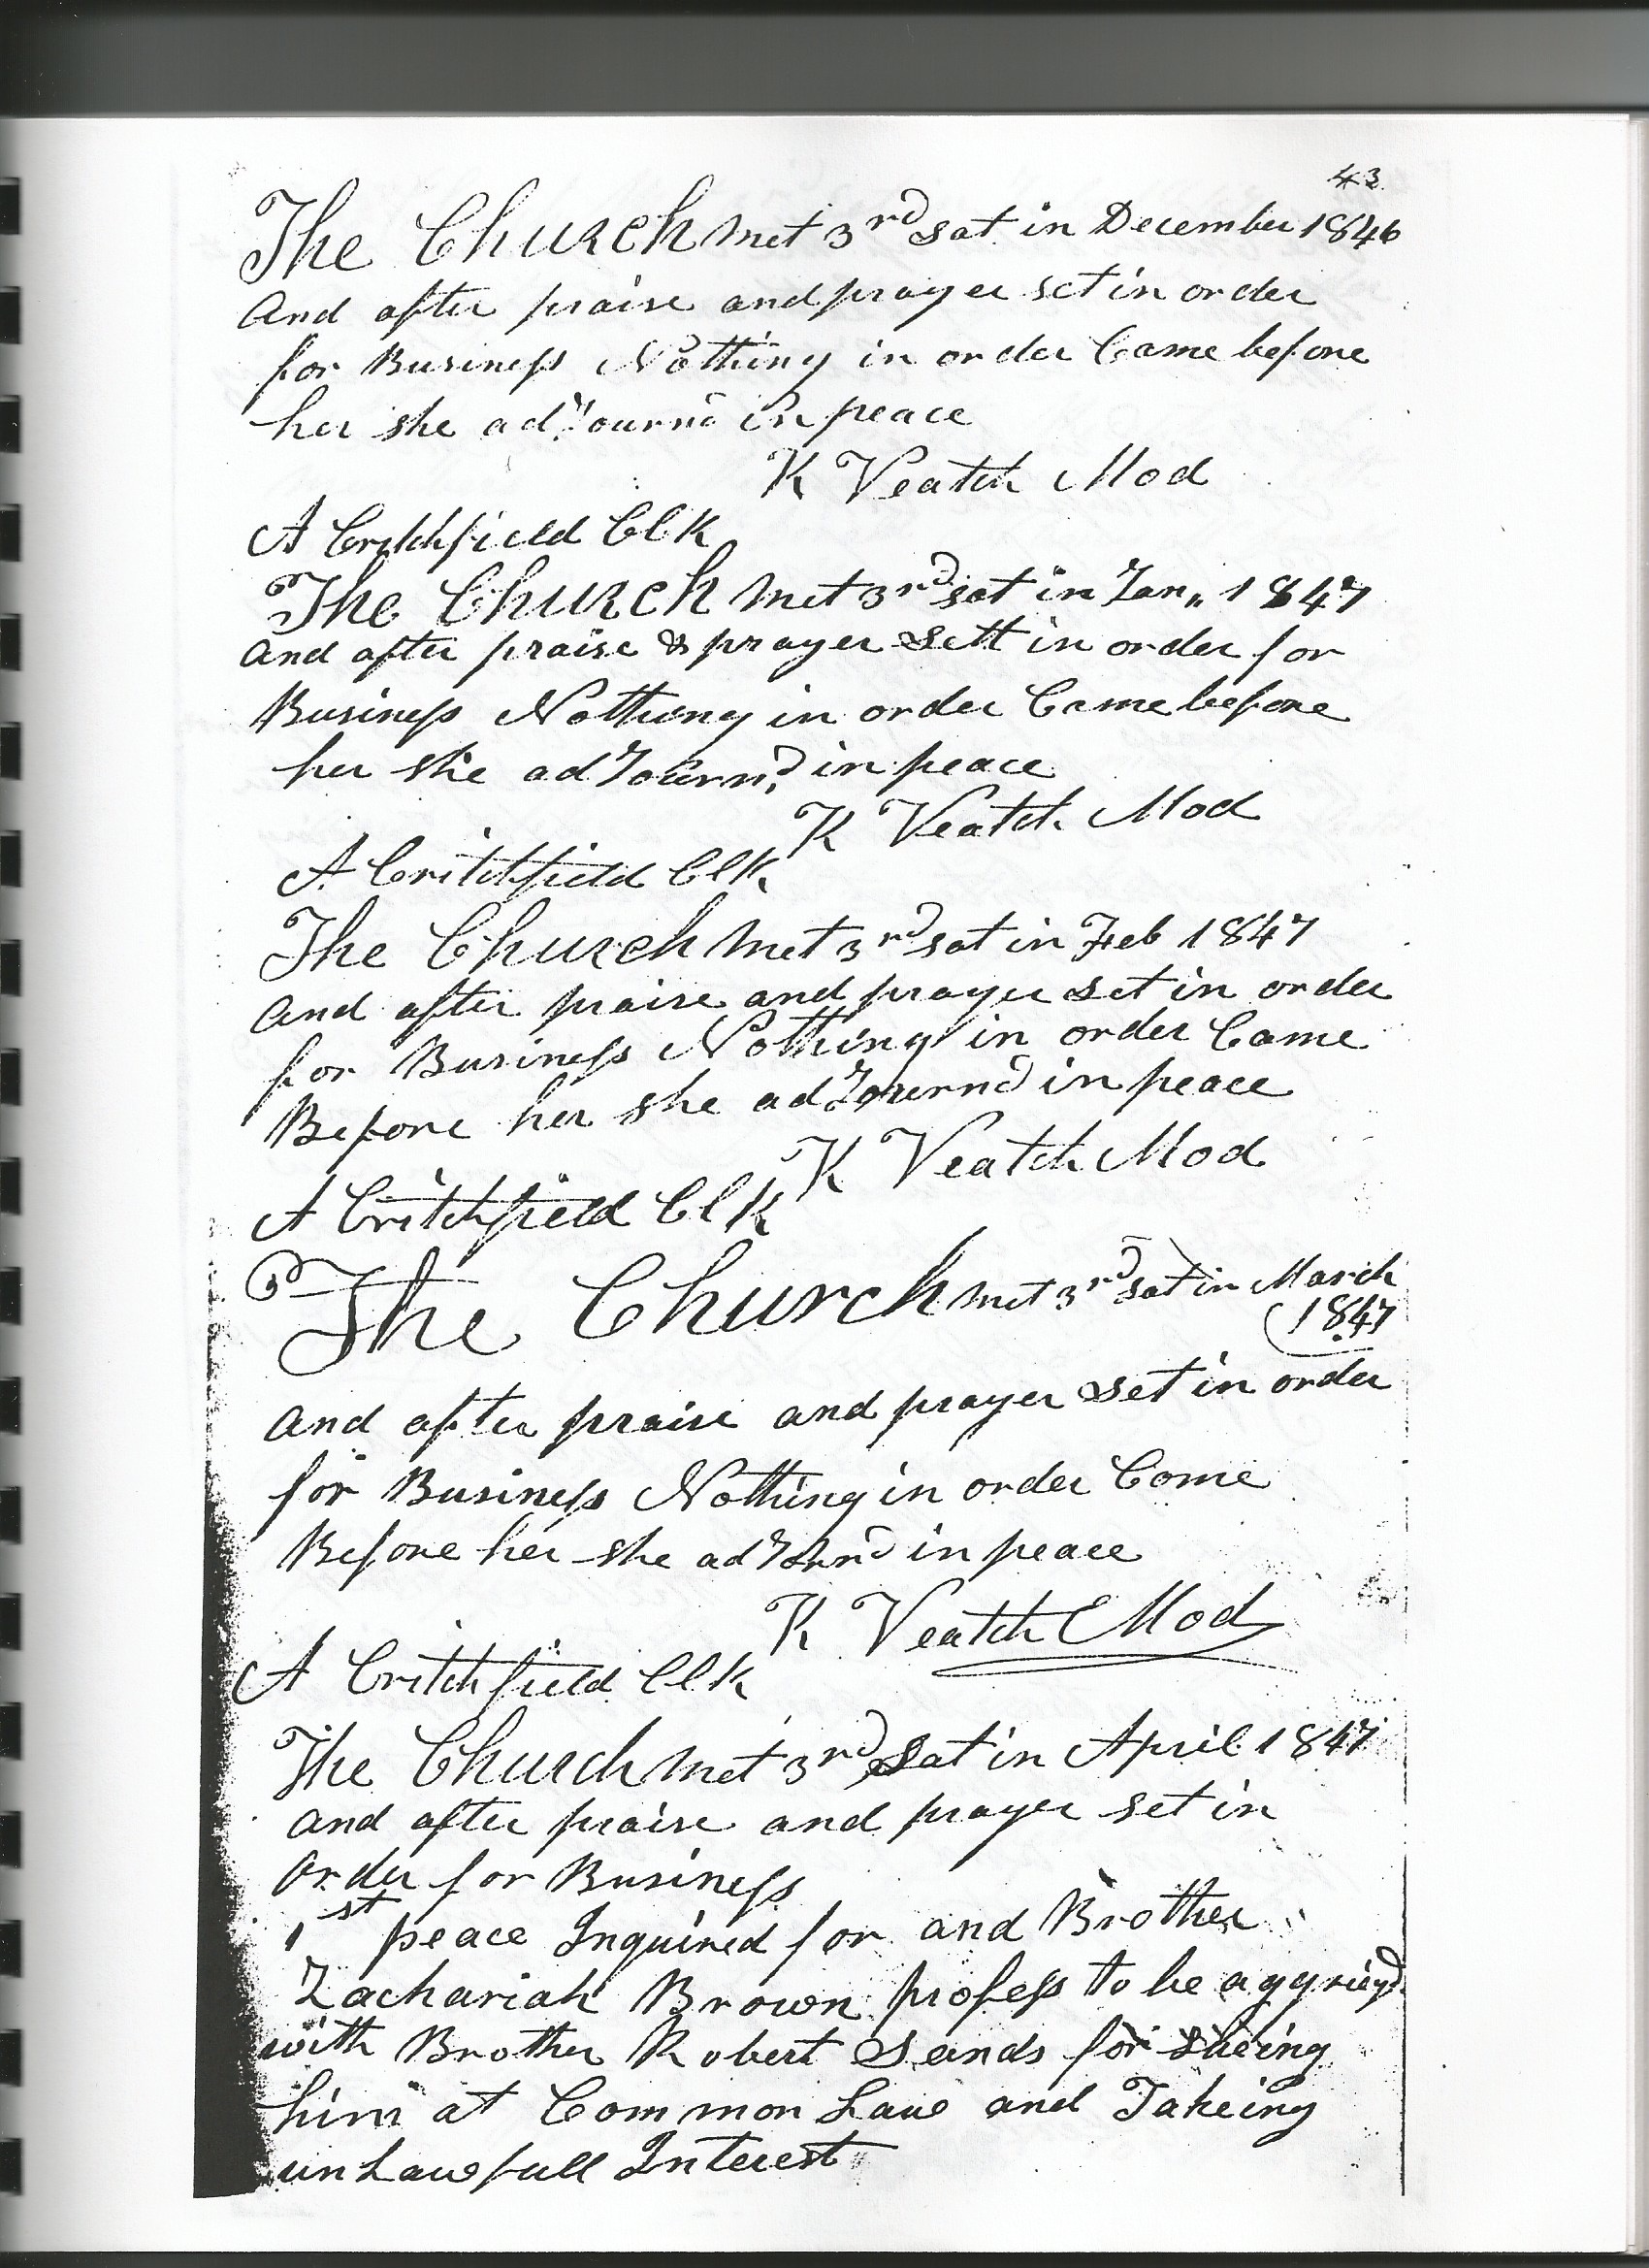 43
The Church met 3rd sat in December 1846
And after praise and prayer set in order
for Business Nothing in order Came before
her she adJournd in peace
K Veatch Mod
A Critchfield ClK
The Church met 3rd sat in Jan,, 1847
And after praise & prayer Sett in order for
Business Nothing in order Came before
her she adJournd in peace
K Veatch Mod
A Critchfield ClK
The Church met 3rd sat in Feb 1847
And after praise and prayer set in order
for Business Nothing in order Came
Before her she adJournd in peace
K Veatch Mod
A Critchfield ClK
The Church met 3rd sat in March
1847
And after praise and prayer set in order
for Business Nothing in order Come
Before her she adJornd in peace
K Veatch Mod
A Critchfield ClK
The Church met 3rd Sat in April 1847
And after praise and prayer set in
order for Business
1st peace Inquired for and Brother
Zachariah Brown profess to be aggriegd
with Brother Robert Sands for sueing
him at Common Law and Takeing
unLawfull Interest